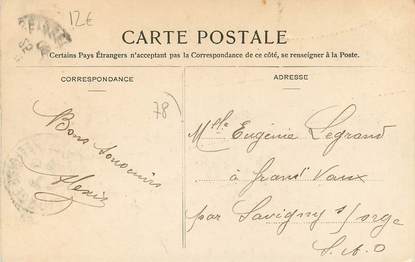 12€
CARTE POSTALE
Certains Pays Étrangers n'acceptent pas la Correspondance de ce côté, se renseigner à la Poste.
CORRESPONDANCE
ADRESSE
78
Bons souvenirs
Alexis
Mlle Eugénie Legrand
à Grand Vaux
par Savigny s/orge
S. & O